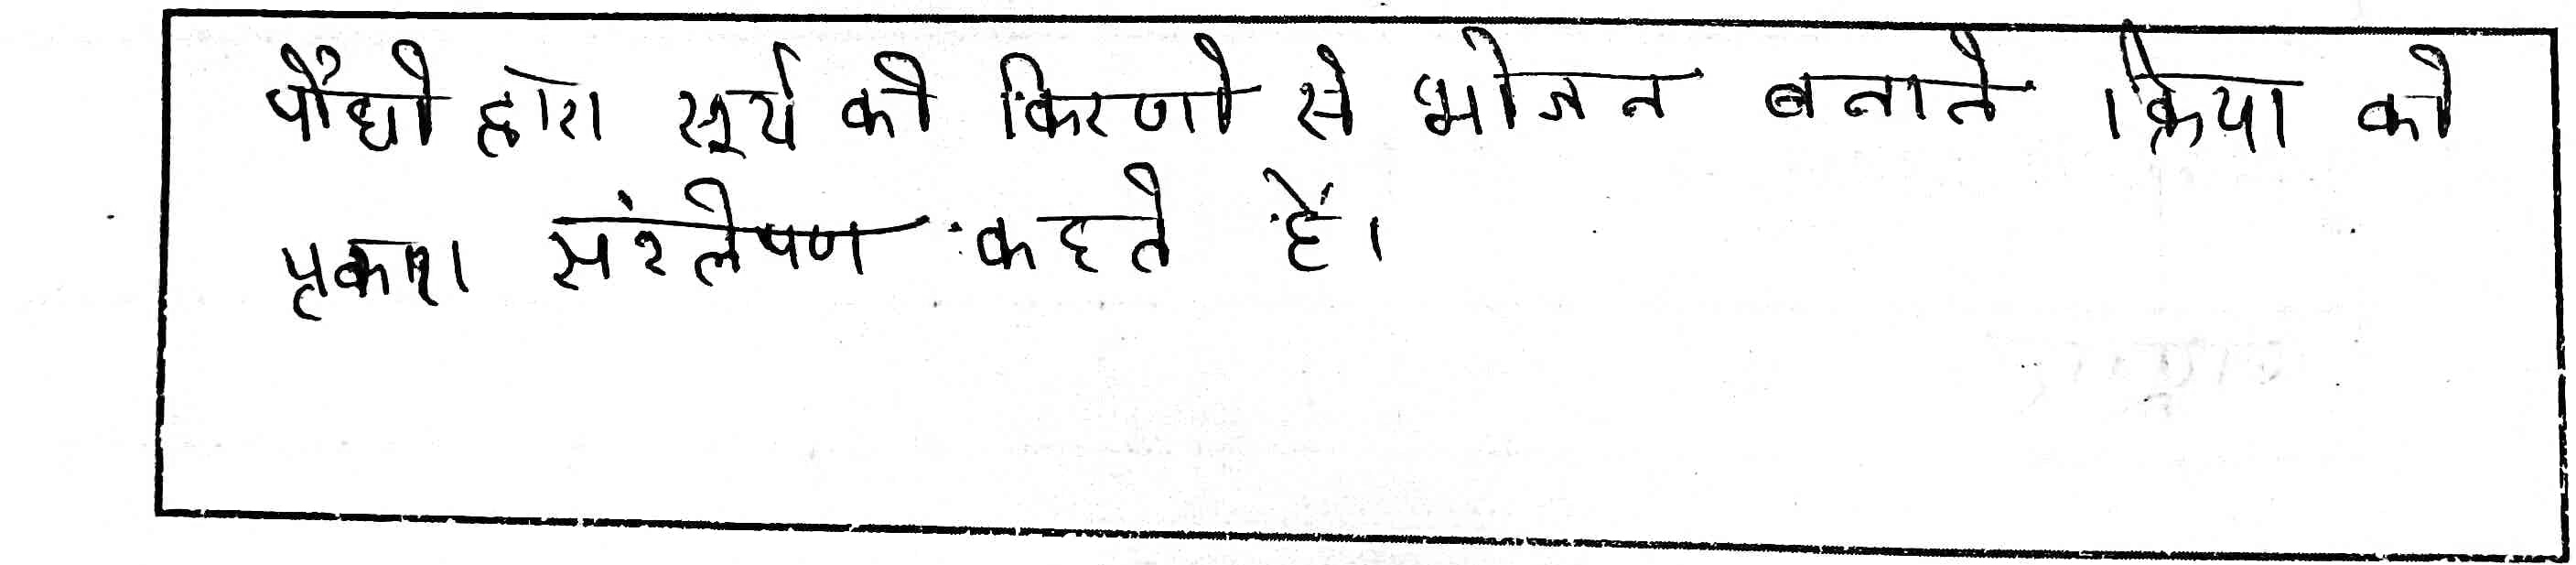 पौधो द्वारा सूर्य की किरणो से भोजन बनाते क्रिया को
प्रकाश संश्लेषण कहते हैं।